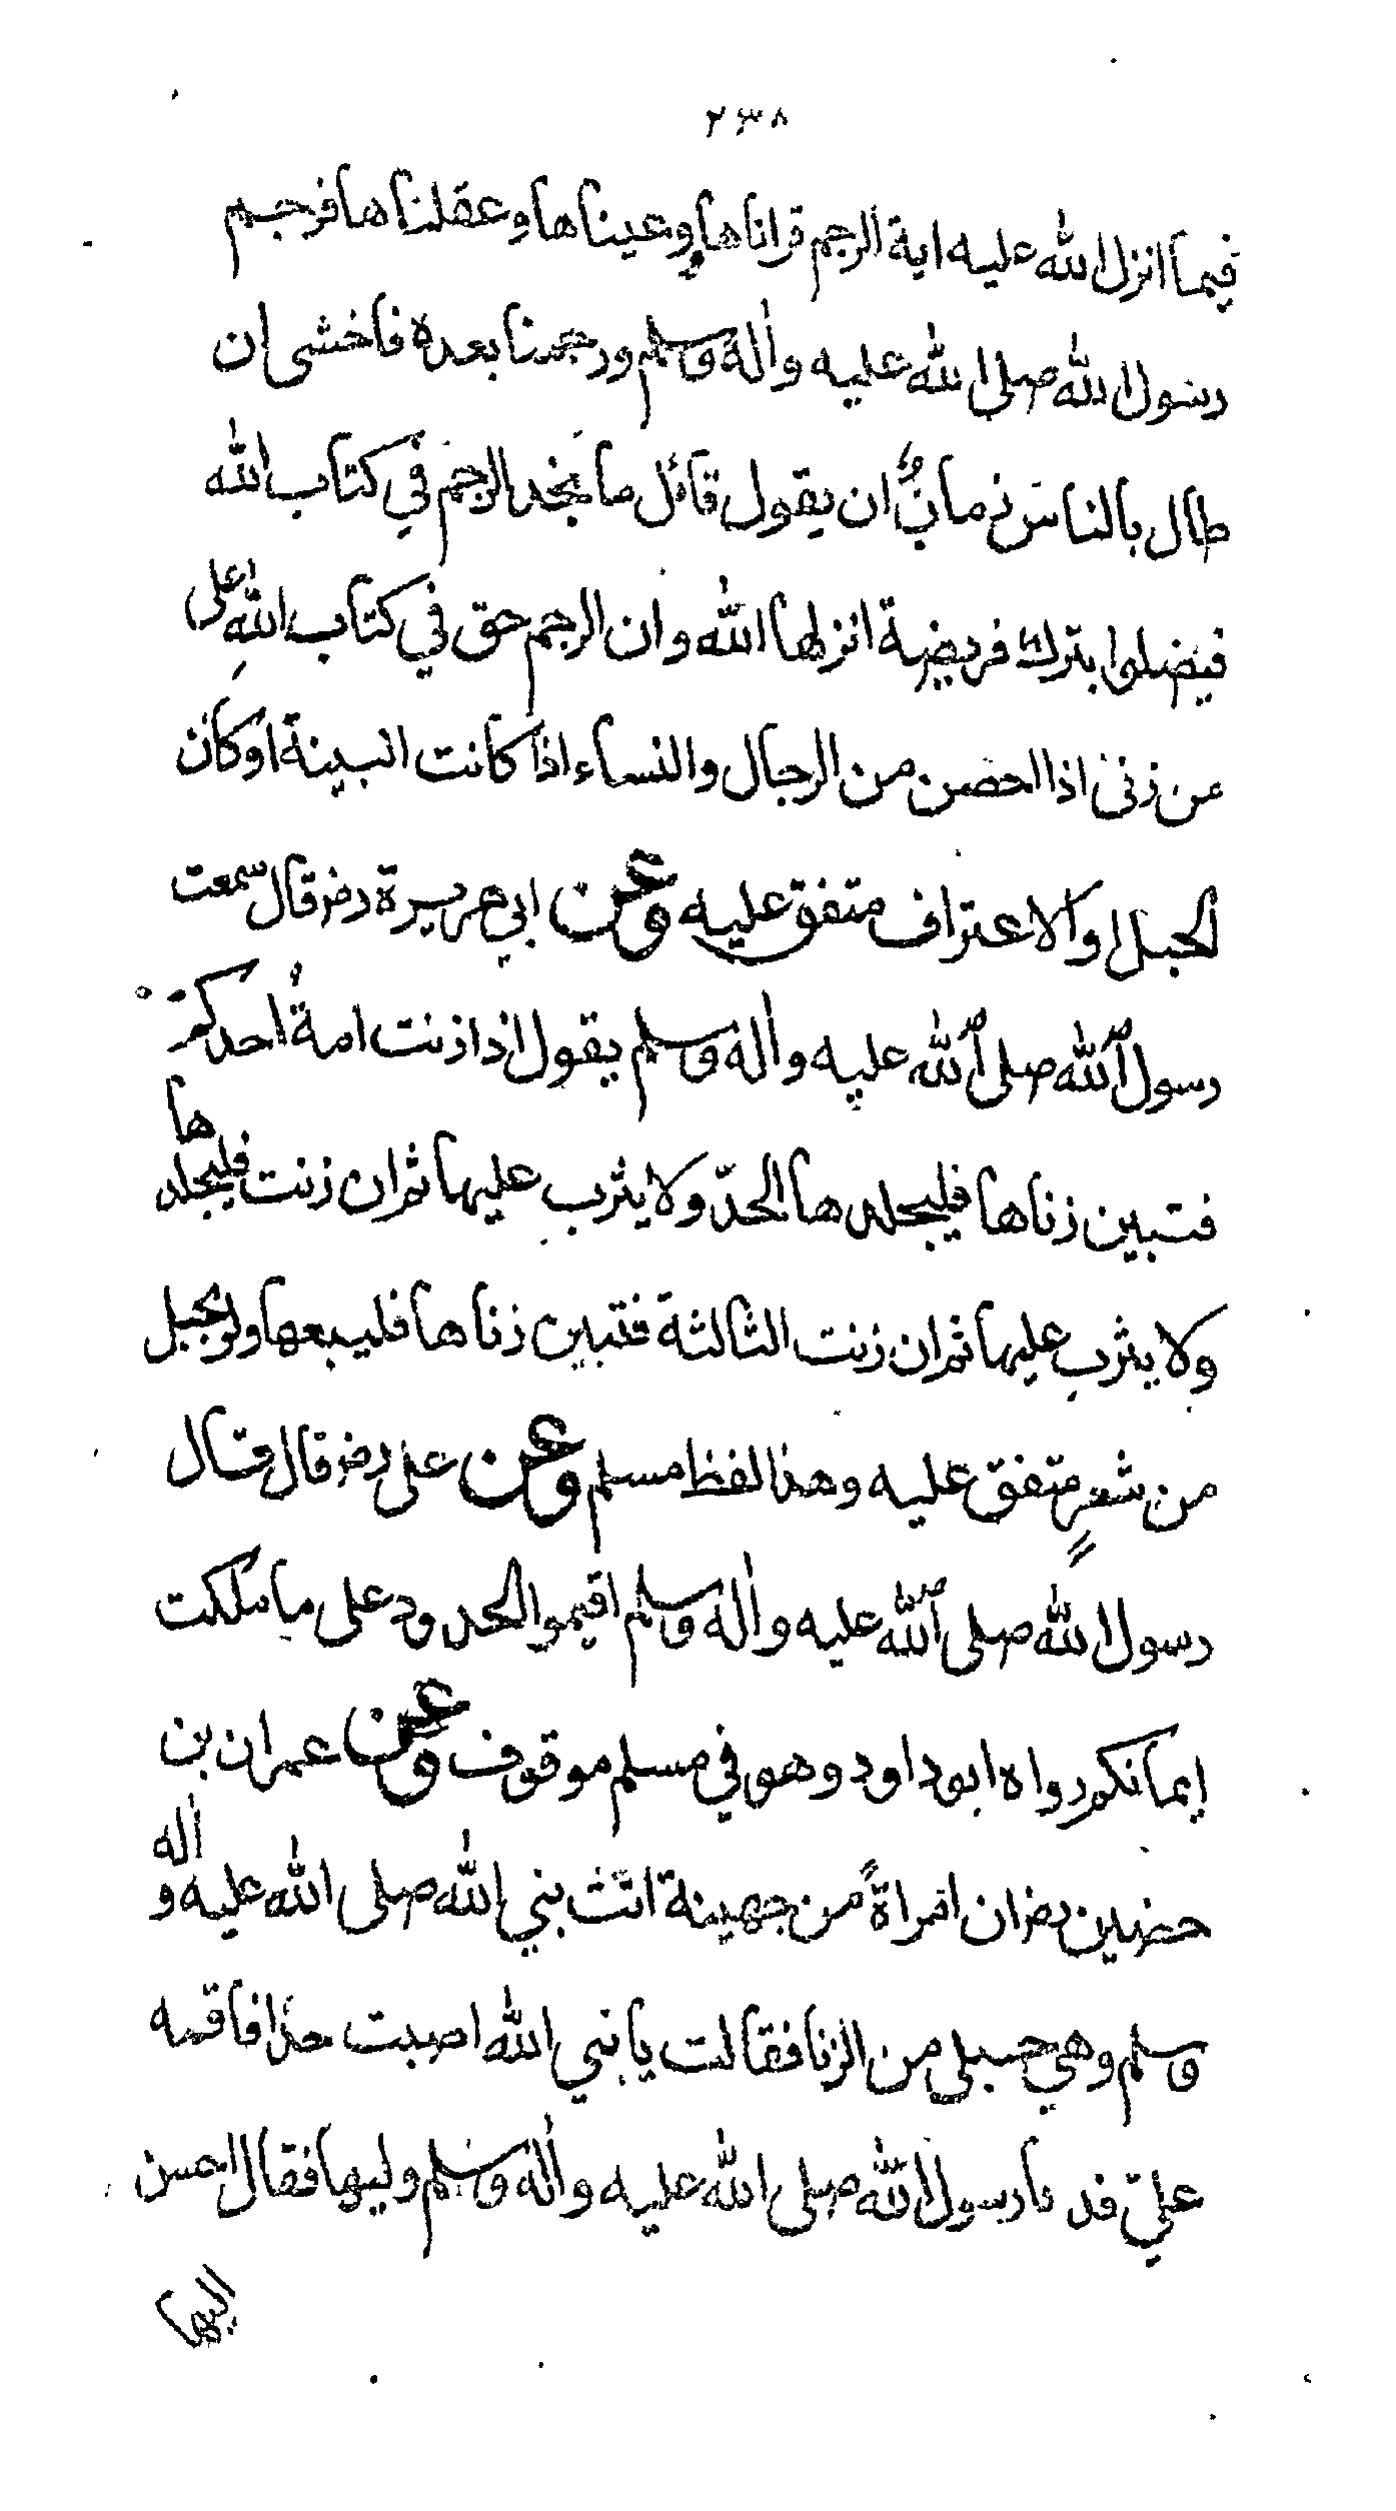 ٢٣٨
فيما انزل الله عليه اية الرجم قراناها ووعيناها وعقلناها فرجم
رسول الله صلى الله عليه واله وسلم ورجمنا بعده فاخشى ان
طال بالناس زمانٌ ان يقول قائل ما نجد الرجم في كتاب الله
فيضلوا بترك فريضة انزلها الله وان الرجم حق في كتاب اللهِ على
من زنى اذا احصن من الرجال والنساء اذا كانت البينة او كان
الحبل او الاعتراف متفق عليه وعن ابي هريرة رض قال سمعت
رسول الله صلى الله عليه واله وسلم يقول اذا زنت امةُ احدكم
فتبين زناها فليجلدها الحدّ ولا يثرب عليها ثم ان زنت فليجلدها
ولا يثرب عليها ثم ان زنت الثالثة فتبين زناها فليبعها ولو بحبل
من شعرٍ متفق عليه وهذا لفظ مسلم وعن على رض قال قال
رسول الله صلى الله عليه واله وسلم اقيموا الحدود على ما ملكت
ايمانكم رواه ابو داود وهو في مسلم موقوف وعن عمران بن
حضين رض ان امراةً من جهينة اتت نبي الله صلى الله عليه واله و
وسلم وهي حبلى من الزنا فقالت يا نبي الله اصبت حدّا فاقمه
عليّ فدعا رسول الله صلى الله عليه واله وسلم وليها فقال احسن
اليها